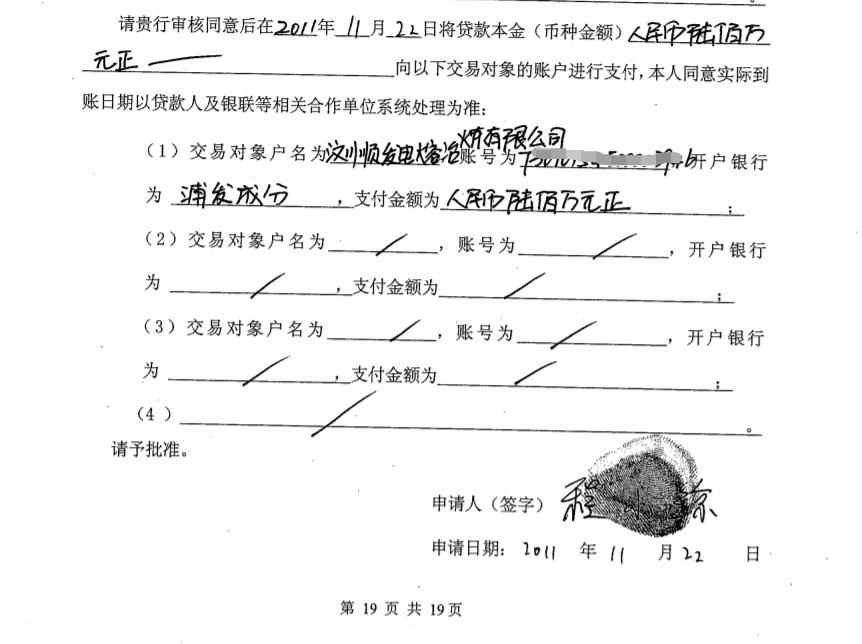 请贵行审核同意后在2011年11月22日将贷款本金（币种金额）人民币陆佰万
元正 向以下交易对象的账户进行支付，本人同意实际到
账日期以贷款人及银联等相关合作单位系统处理为准：
（1）交易对象户名为汶川顺发电熔冶炼有限公司账号为 开户银行
为 浦发成分 ，支付金额为人民币陆佰万元正 ；
（2）交易对象户名为 / ，账号为 / ，开户银行
为 / ，支付金额为 / ；
（3）交易对象户名为 / ，账号为 / ，开户银行
为 / ，支付金额为 / ；
（4） / 。
请予批准。
申请人（签字） 程
申请日期：2011 年 11 月 22 日
第 19 页 共 19 页